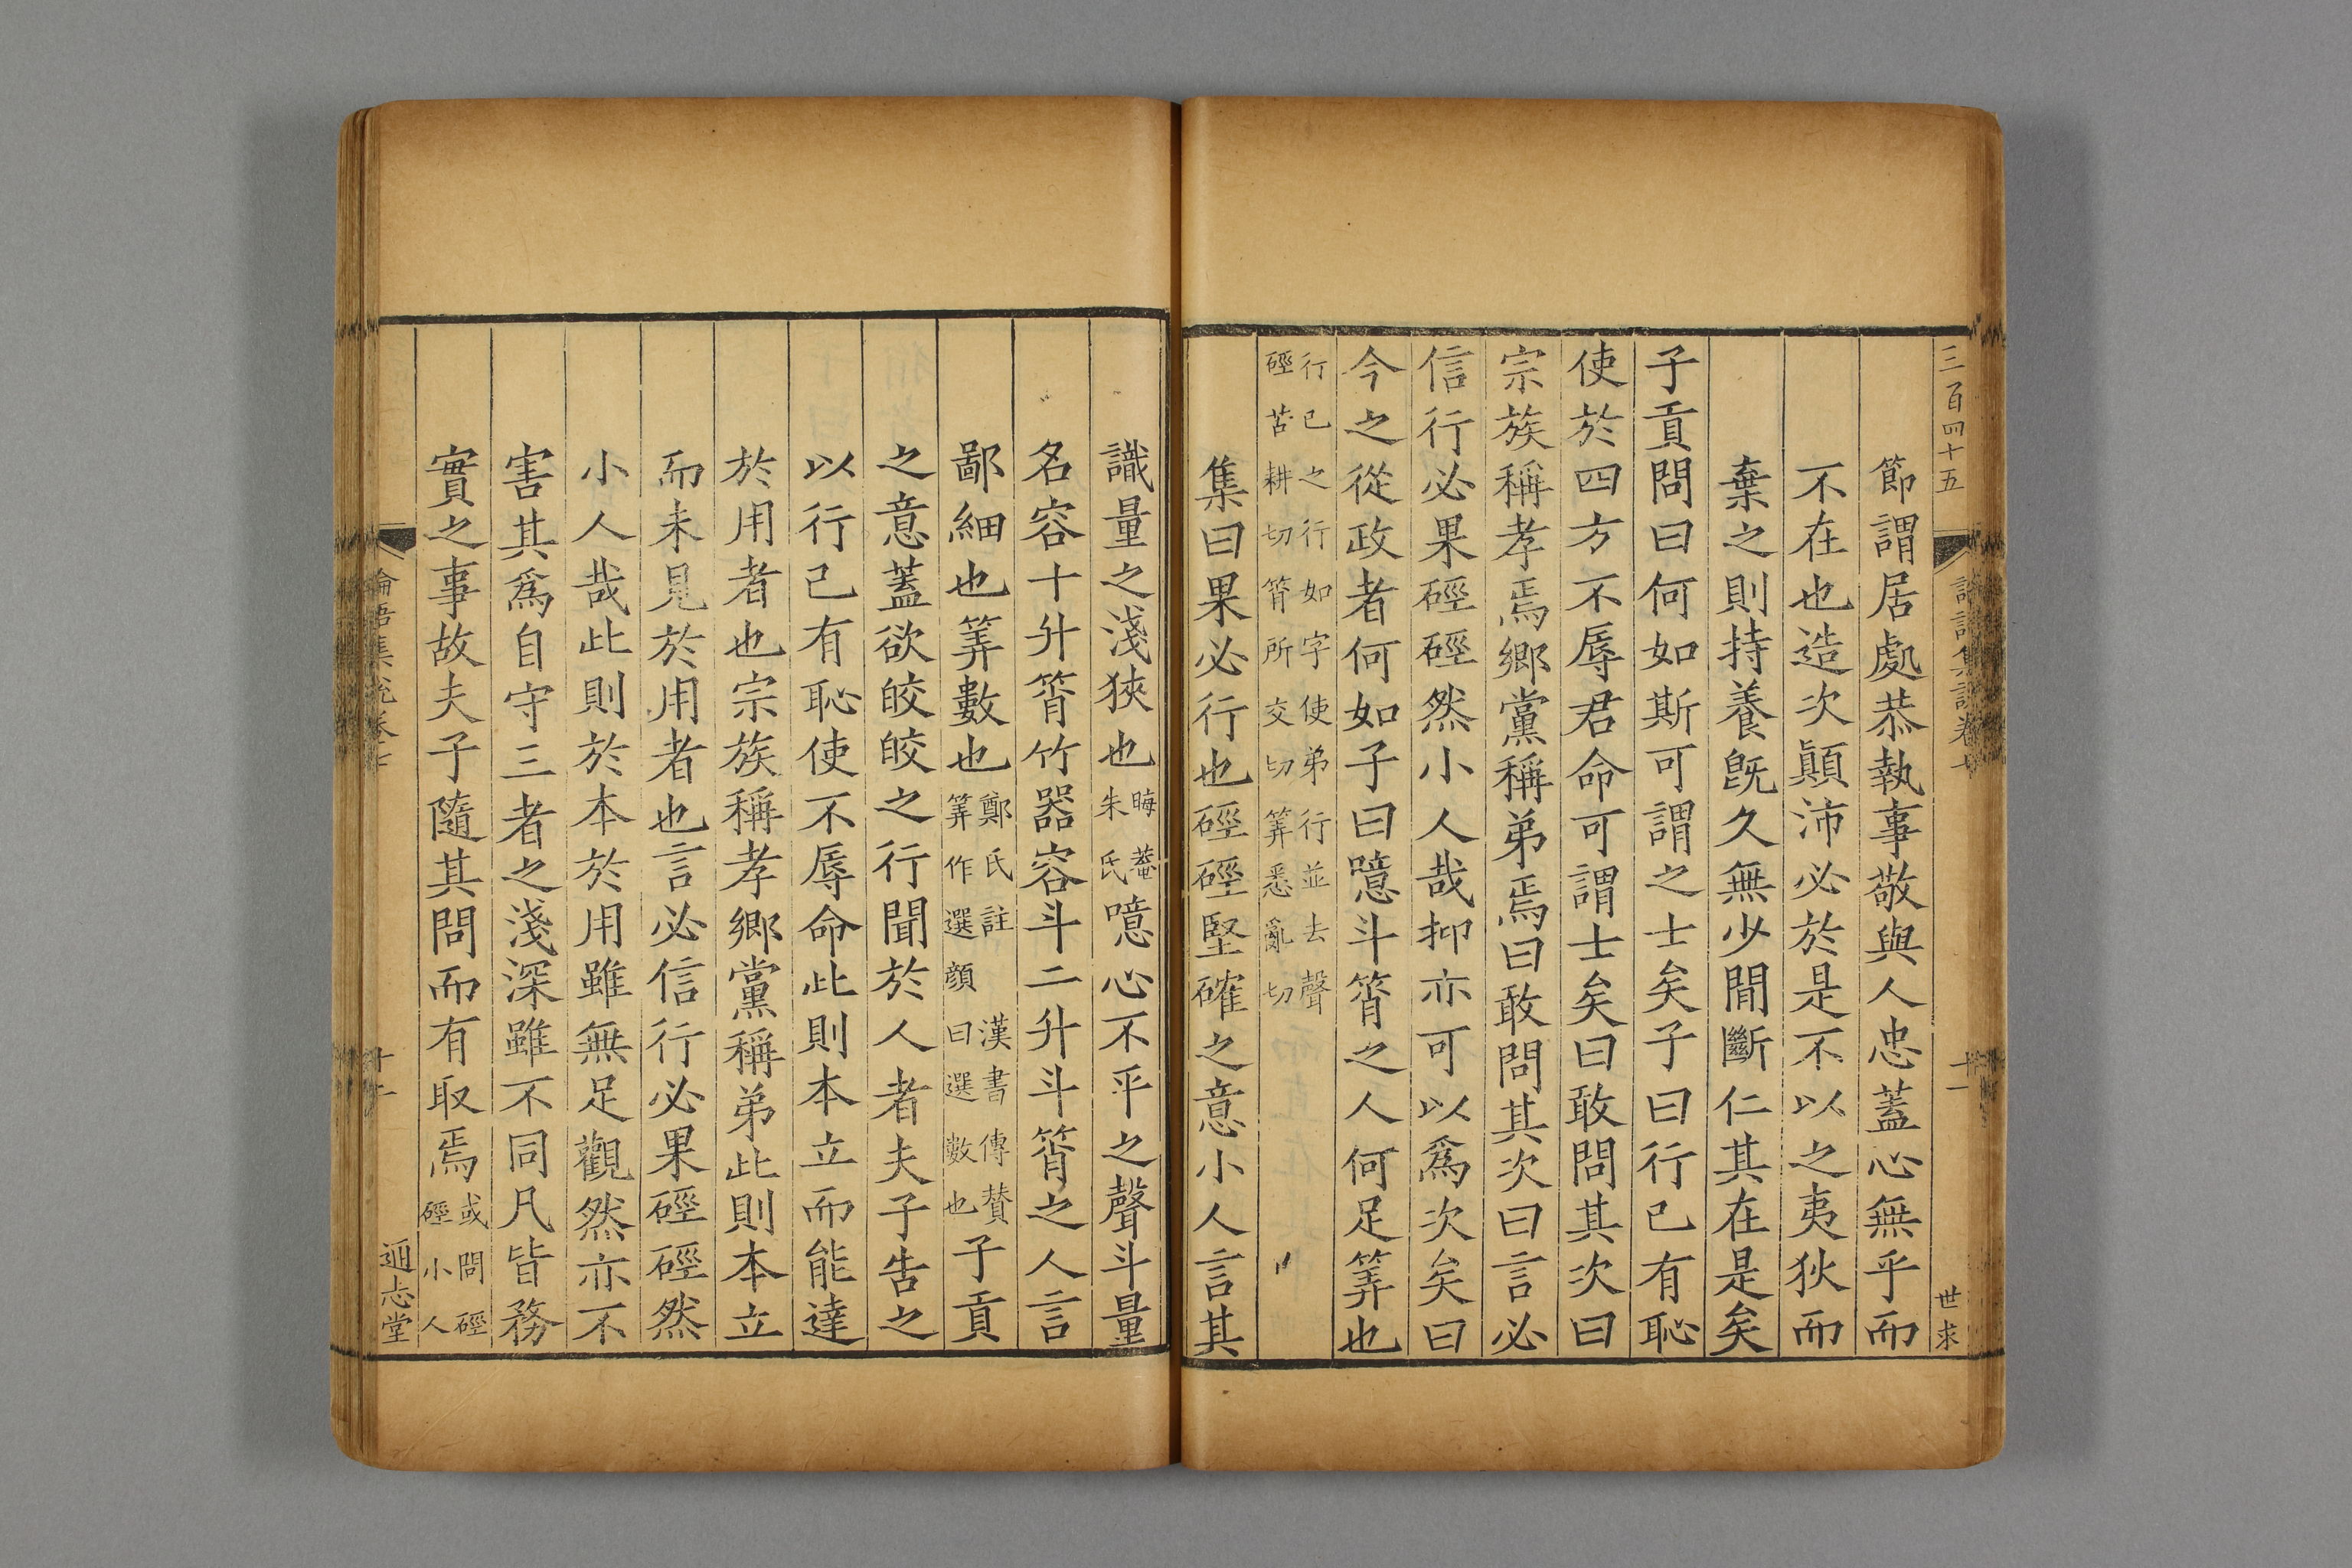 三百四十五
論語集說卷七
十一
世求
節謂居處恭執事敬與人忠蓋心無乎而
不在也造次顚沛必於是不以之夷狄而
棄之則持養旣久無少閒斷仁其在是矣
子貢問曰何如斯可謂之士矣子曰行己有恥
使於四方不辱君命可謂士矣曰敢問其次曰
宗族稱孝焉鄉黨稱弟焉曰敢問其次曰言必
信行必果硜硜然小人哉抑亦可以爲次矣曰
今之從政者何如子曰噫斗筲之人何足筭也
行己之行如字使弟行並去聲
硜苦耕切筲所交切筭悉亂切
集曰果必行也硜硜堅確之意小人言其
識量之淺狹也晦菴朱氏噫心不平之聲斗量
名容十升筲竹器容斗二升斗筲之人言
鄙細也筭數也鄭氏註漢書傳贊筭作選顔曰選數也子貢
之意蓋欲皎皎之行聞於人者夫子告之
以行己有恥使不辱命此則本立而能達
於用者也宗族稱孝鄉黨稱弟此則本立
而未見於用者也言必信行必果硜硜然
小人哉此則於本於用雖無足觀然亦不
害其爲自守三者之淺深雖不同凡皆務
實之事故夫子隨其問而有取焉或問硜硜小人
論語集說卷七
十一
通志堂